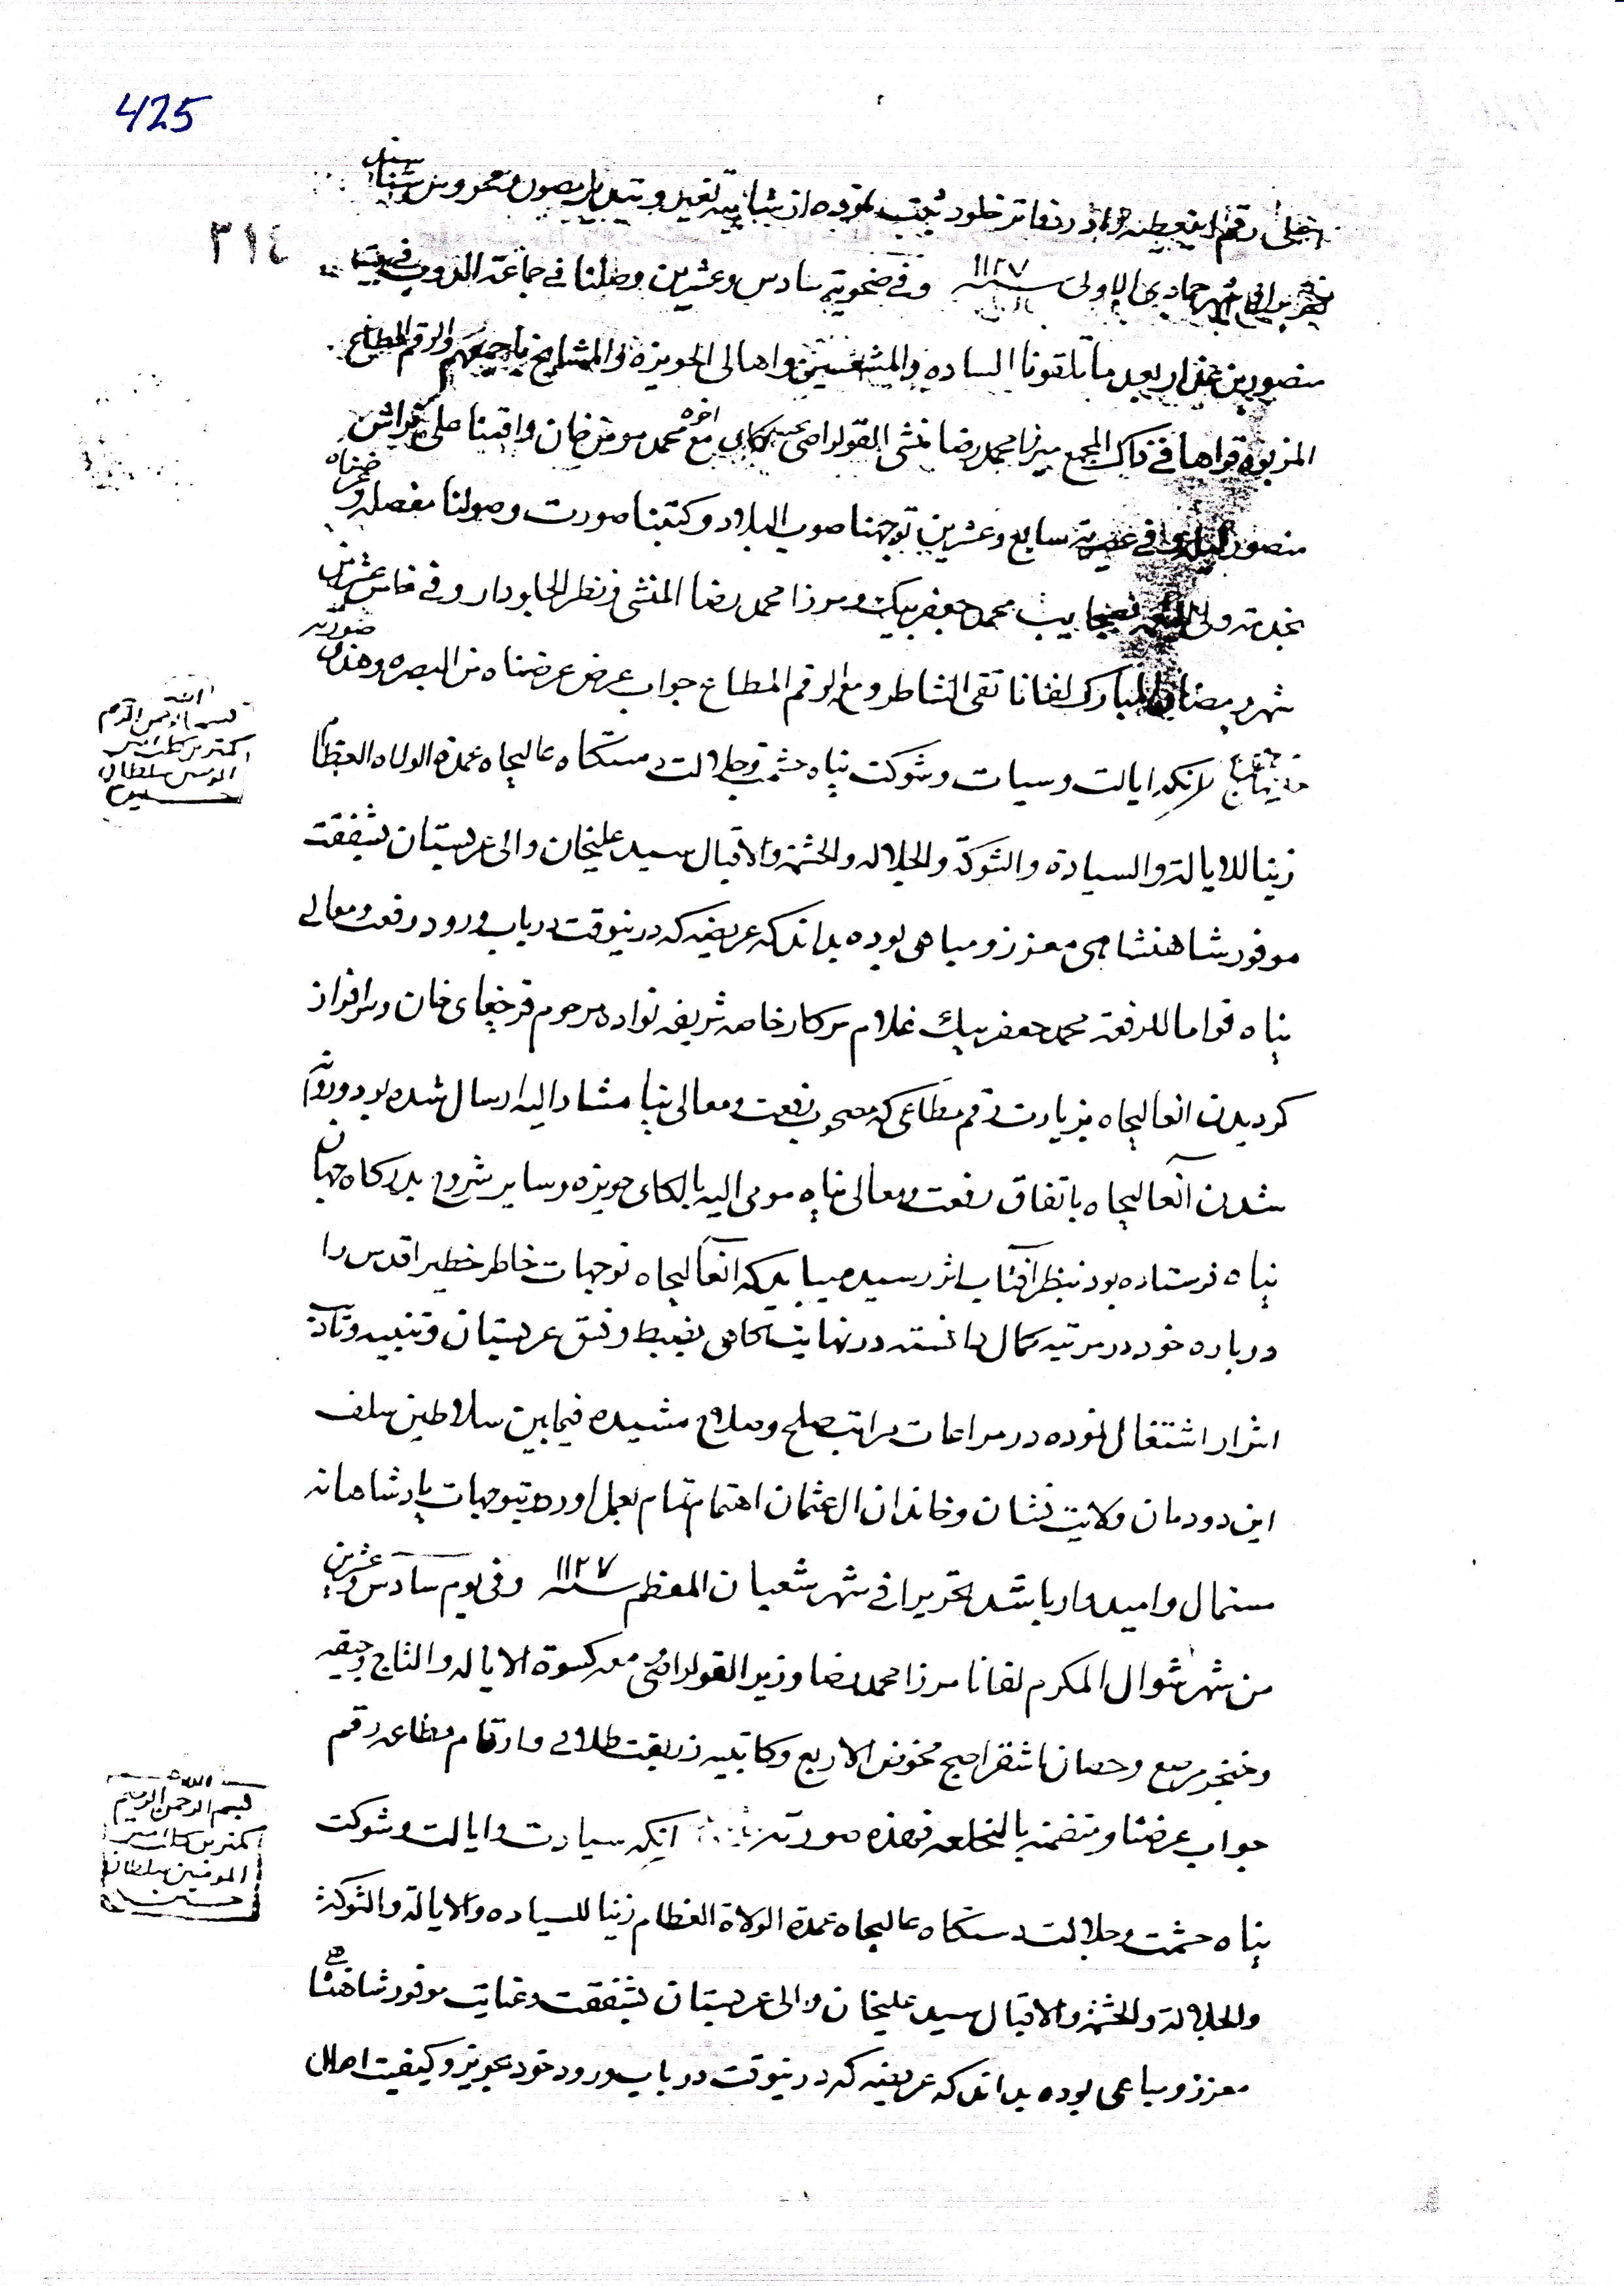 425
٣١٤
رقم در دفاتر خلود ثبت نموده از شایبه تغییر و تبدیل مصون و محروس شناسند
تحریرا فی شهر جمادی الاولی سنه ١١٢٧ وفی ضحویة سادس وعشرین وصلنا فی جماعة الدورق فی بیت
منصور بن بعد ما تلقونا الساده والمشعشعین واهالی الحویزه والمشایخ باجمعهم والرقم المطاع
المزبور قراها فی ذاک المجمع میرزا محمد رضا منشی القولراصی مع اخوه محمد مومن خان واقمنا علی فراش
منصور وفی عصریة سابع وعشرین توجهنا صوب البلاد وکتبنا صورت وصولنا مفصله وعرضناه
بخدمته ولی بیت محمد جعفر بیک ومرزا محمد رضا المنشی ونظر الجابودار وفی خامس عشرین
شهر رمضان المبارک لفانا تقی الشاطر ومع الرقم المطاع جواب عرض عرضناه من البصره وهذه صورته
آنکه ایالت وسیات وشوکت پناه حشمت وجلالت دستکاه عالیجاه عمدة الولاه العظام
زینا للایالة والسیادة والشوکة والجلاله والحشمة والاقبال سید علیخان والی عربستان بشفقت
موفور شاهنشاهی معزز ومباهی بوده بداند که عریضه که درینوقت در باب ورود رفعت ومعالی
پناه قواما للرفعه محمد جعفر بیک غلام سرکار خاصه شریفه نواده مرحوم قرچغای خان وسرافراز
کردیدن انعالیجاه بزیارت رقم مطاعی که مصحوب رفعت ومعالی پناه مشار الیه ارسال شده بود وروانه
شدن آنعالیجاه باتفاق رفعت ومعالی پناه مومی الیه بالکای حویزه وسایر شروح بدرکاه جهان
پناه فرستاده بود بنظر آفتاب اثر رسید میباید که آنعالیجاه توجهات خاطر خطیر اقدس را
درباره خود در مرتبه کمال دانسته در نهایت آکاهی بضبط ونسق عربستان وتنبیه وتادیب
اشرار اشتغال نموده در مراعات مراتب صلح وصلاح مشیده فیمابین سلاطین سلف
این دودمان ولایت نشان وخاندان ال عثمان اهتمام تمام بعمل اورده بتوجهات پادشاهانه
مستمال وامیدوار باشد تحریرا فی شهر شعبان المعظم سنه ١١٢٧ وفی یوم سادس وعشرین
من شهر شوال المکرم لفانا مرزا محمد رضا وزیر القولراصی معه کسوة الایاله والتاج وجیقه
وخنجر مرصع وحصان اشقر اصبح مخوض الاربع وکاتبیه زربفت طلالی وارقام مطاعه رقم
جواب عرضنا ومتضمنه بالخلعه فهذه صورته آنکه سیادت وایالت وشوکت
پناه حشمت وجلالت دستکاه عالیجاه عمدة الولاة العظام زینا للسیاده والایالة والشوکة
والجلالة والحشمة والاقبال سید علیخان والی عربستان بشفقت وعنایت موفور شاهنشاهی
معزز ومباهی بوده بداند که عریضه که درینوقت در باب ورود خود بحویزه وکیفیت احوال
الله
بسم الله الرحمن الرحیم
کمترین کلب امیر
المومنین سلطان
حسین
الله
بسم الله الرحمن الرحیم
کمترین کلب امیر
المومنین سلطان
حسین